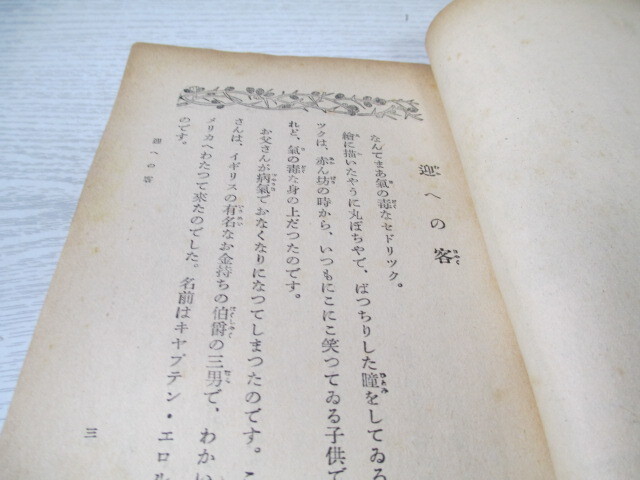 迎への客
なんてまあ氣の毒なセドリツク。
繪に描いたやうに丸ぽちやで、ぱつちりした瞳をしてゐる
ツクは、赤ん坊の時から、いつもにこにこ笑つてゐる子供で
れど、氣の毒な身の上だつたのです。
お父さんが病氣でおなくなりになつてしまつたのです。こ
さんは、イギリスの有名なお金持ちの伯爵の三男で、わかい
メリカへわたつて来たのでした。名前はキヤプテン・エロル
のです。
迎への客
三